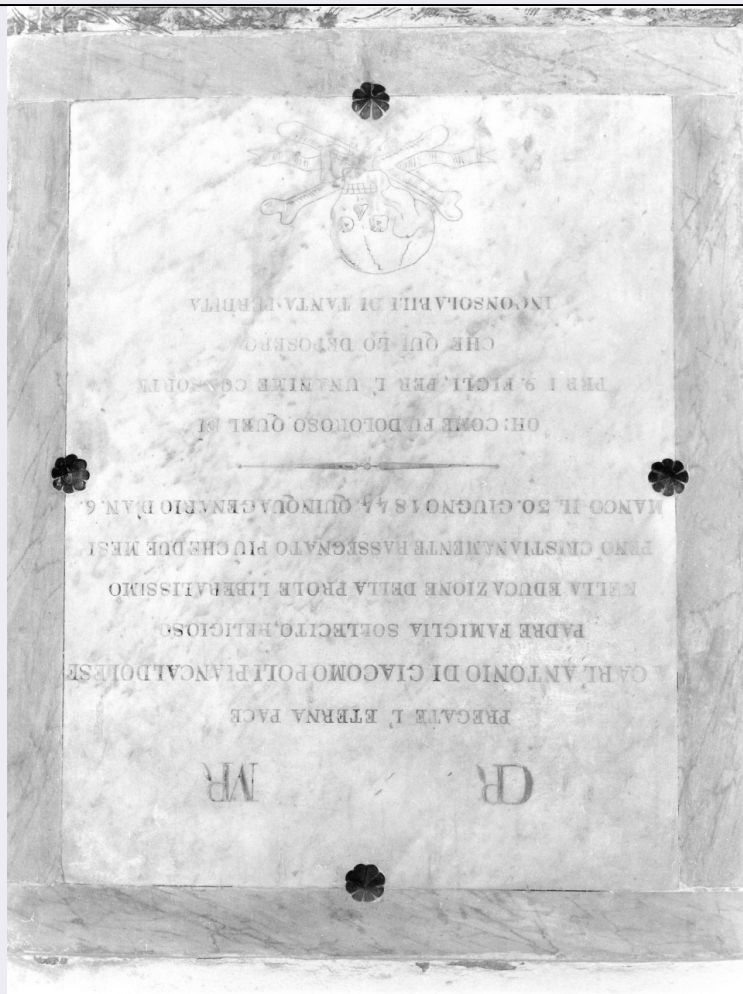 PREGATE L' ETERNA PACE
A CARL' ANTONIO DI GIACOMO POLI PIANCALDOLESE
PADRE FAMIGLIA SOLLECITO, RELIGIOSO
NELLA EDUCAZIONE DELLA PROLE LIBERALISSIMO
PENO CRISTIANAMENTE RASSEGNATO PIU CHE DUE MESI
MANCO IL 30. GIUGNO 1844. QUINQUAGENARIO D'AN. 6.
OH! COME FU DOLOROSO QUEL DI
PER I 9. FIGLI, PER L' UNANIME CONSORTE
CHE QUI LO DEPOSERO
INCONSOLABILI DI TANTA PERDITA